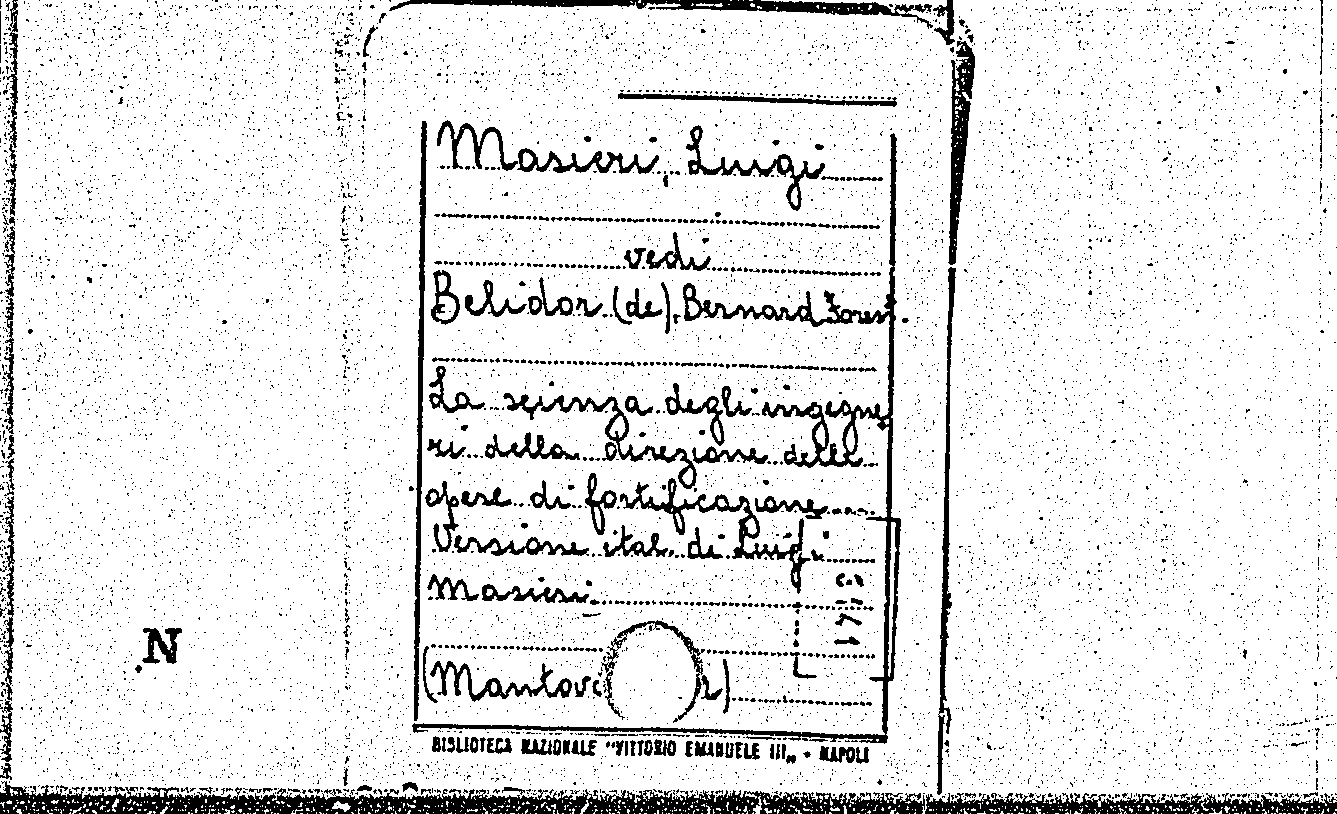 Masieri, Luigi
vedi
Belidor (de), Bernard Forest.
La scienza degli ingegne
ri della direzione delle
opere di fortificazione....
Versione ital. di Luigi
Masieri.
N
(Mantov
BIBLIOTECA NAZIONALE "VITTORIO EMANUELE III„ - NAPOLI